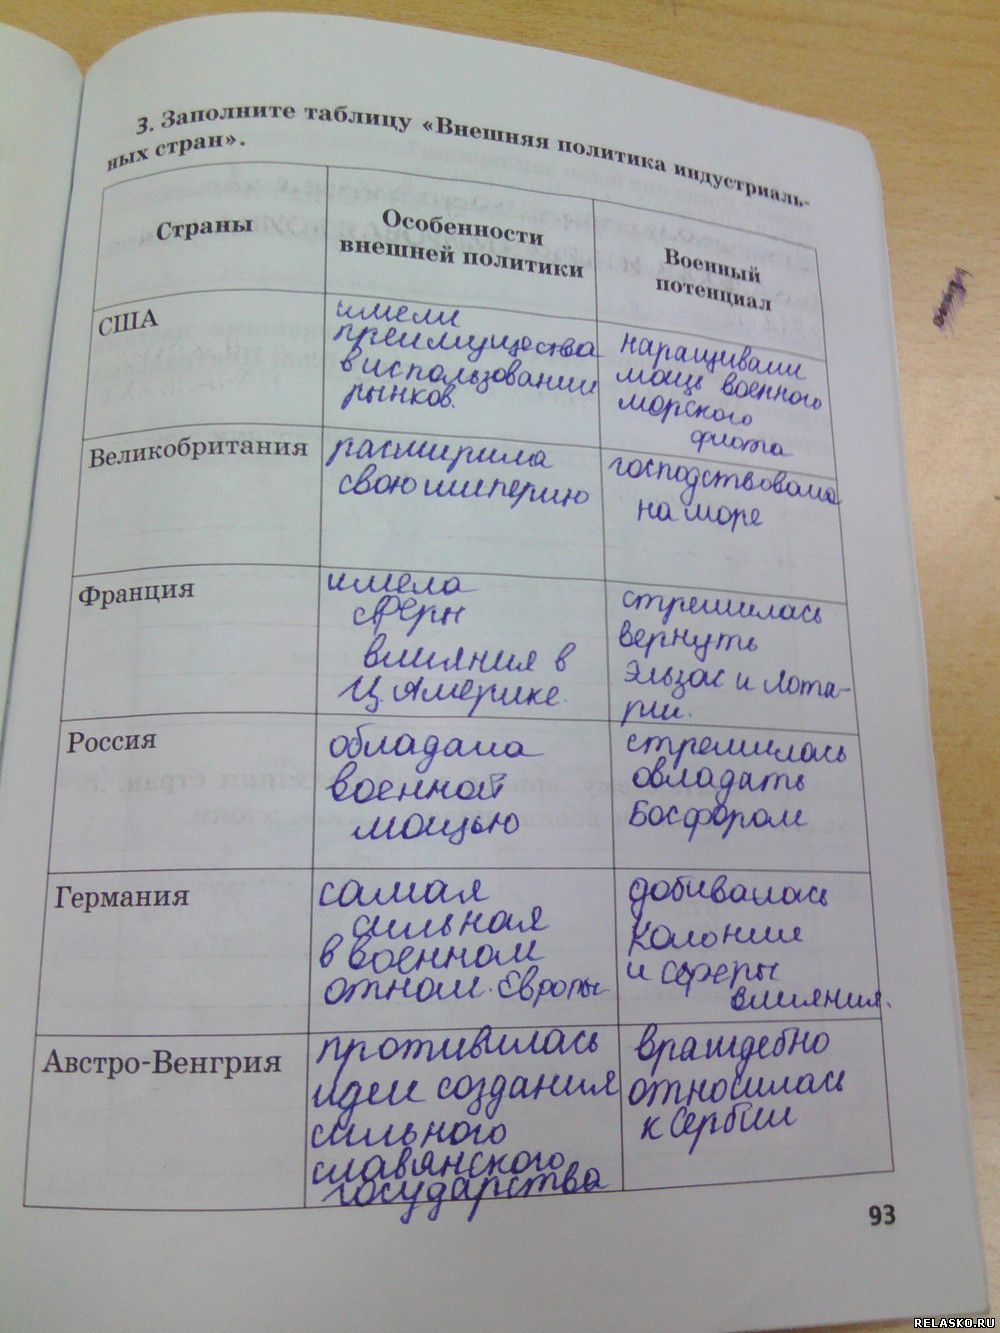 3. Заполните таблицу «Внешняя политика индустриаль-
ных стран».
Страны
Особенности
внешней политики
Военный
потенциал
США
имели
преимущества
в использовании
рынков.
наращивали
мощь военного
морского
флота
Великобритания
расширила
свою империю
господствовала
на море
Франция
имела
сферы
влияния в
Ц. Америке.
стремилась
вернуть
Эльзас и Лота-
рии.
Россия
обладала
военной
мощью
стремилась
овладать
Босфором
Германия
самая
сильная
в военном
отном. Европы
добивалась
колонии
и сферы
влияния.
Австро-Венгрия
противилась
идеи создания
сильного
славянского
государства
враждебно
относилась
к Сербии
93
RELASKO.RU